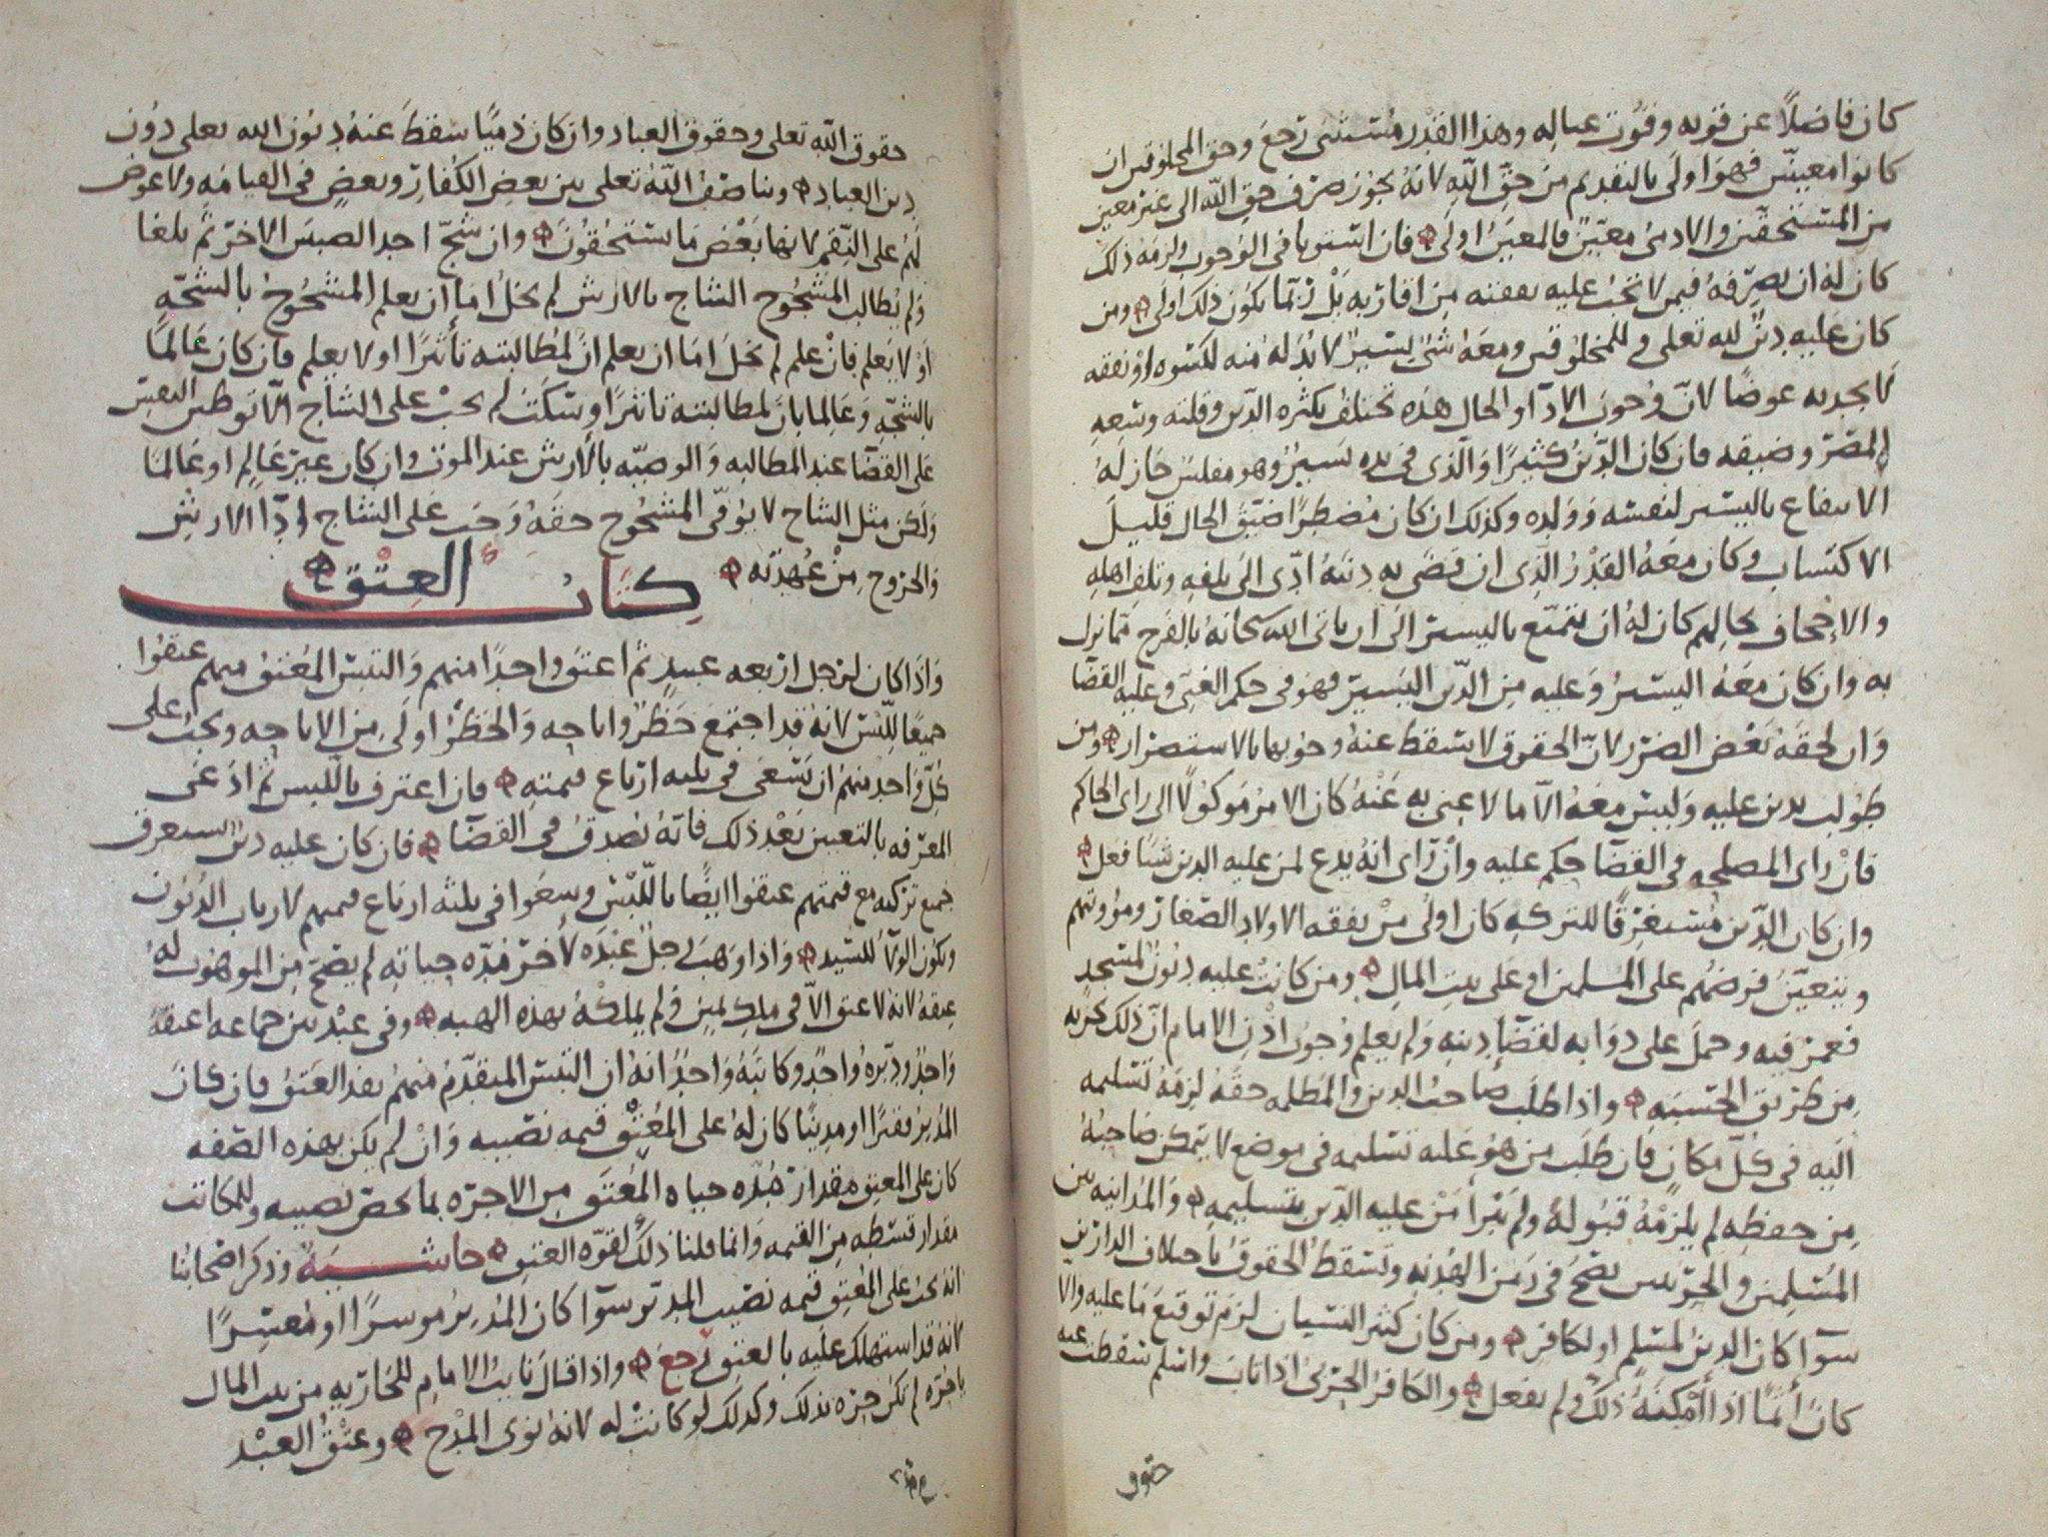 كان فاضلا عن قوته وقوت عياله وهذا القدر مستثنى رجع وحق المخلوقين ان
كانوا معينين فهو اولى بالتقديم من حق الله لانه يجوز صرف حق الله الى غير معين
من المستحقين والادمي معين فالمعين اولى فان استويا في الوجوب ولزمه ذلك
كان له ان يصرفه فيمن لا تجب عليه نفقته من اقاربه بل ربما يكون ذلك اولى ومن
كان عليه دين لله تعلى وللمخلوقين ومعه شي يسير لا بد له منه لكسوه او نفقه
لا يجد به عوضا لان وجوب الاداء والحال هذه تختلف بكثره الدين وقلته وسعه
المصر وضيقه فان كان الدين كثيرا والذي في يده يسير وهو مفلس جاز له
الانتفاع باليسير لنفسه وولده وكذلك ان كان مضطرا ضيق الحال قليل
الاكتساب وكان معه القدر الذي ان قضى به دينه ادى الى تلفه وتلف اهله
والاجحاف بحالهم كان له ان يتمتع باليسير الى ان ياتي الله سبحانه بالفرج مما نزل
به وان كان معه اليسير وعليه من الدين اليسير فهو في حكم الغني وعليه القضا
وان لحقه بعض الضرر لان الحقوق لا يسقط عنه وجوبها بالاستضرار ومن
طولب بدين عليه وليس معه الا ما لا غنى به عنه كان الامر موكولا الى راي الحاكم
فان راى المصلحه في القضا حكم عليه وان راى انه يدع لمن عليه الدين شيا فعل
وان كان الدين مستغرقا للتركه كان اولى من نفقه الاولاد الصغار ومؤونتهم
ويتعين فرضهم على المسلمين او على بيت المال ومن كانت عليه ديون لمسجد
فعمر فيه وحمل على دوابه لقضا دينه ولم يعلم وجوب اذن الامام ان ذلك يجزيه
من طريق الحسبه واذا طلب صاحب الدين والمظلمه حقه لزمه تسليمه
اليه في كل مكان فان طلب من هو عليه تسليمه في موضع لا يتمكن صاحبه
من حفظه لم يلزمه قبوله ولم يبرا من عليه الدين بتسليمه والمداينه بين
المسلمين والحربيين تصح في زمن الهدنه وتسقط الحقوق باختلاف الدارين
سوآ كان الدين لمسلم او لكافر ومن كان كثير النسيان لزمه توقيع ما عليه والا
كان آثما اذا امكنه ذلك ولم يفعل والكافر الحربي اذا تاب واسلم سقطت عنه
حقوق
حقوق الله تعلى وحقوق العباد وان كان ذميا سقط عنه ديون الله تعلى دون
دين العباد ويناصف الله تعلى بين بعض الكفار وبعض في القيامه ولا عوض
لهم على النقم لانها بعض ما يستحقون وان شج احد الصبيين الاخر ثم بلغا
ولم يطالب المشجوج الشاج بالارش لم يخل اما ان يعلم المشجوج بالشجه
او لا يعلم فان علم لم يخل اما ان يعلم ان لمطالبته تاثيرا او لا يعلم فان كان عالما
بالشجه وعالما بان لمطالبته تاثيرا وسكت لم يجب على الشاج الا توطين النفس
على القضا عند المطالبه والوصيه بالارش عند الموت وان كان غير عالم او عالما
ولكن مثل الشاج لا يوفي المشجوج حقه وجب على الشاج ادا الارش
والخروج من عهدته
كتاب العتق
واذا كان لرجل اربعه عبيد ثم اعتق واحدا منهم والتبس المعتق منهم عتقوا
جميعا للبس لانه قد اجتمع حظر واباحه والحظر اولى من الاباحه ويجب على
كل واحد منهم ان يسعى في ثلثه ارباع قيمته فان اعترف باللبس ثم ادعى
المعرفه بالتعيين بعد ذلك فانه يصدق في القضا فان كان عليه دين يستغرق
جميع تركته مع قيمتهم عتقوا ايضا باللبس وسعوا في ثلثه ارباع قيمتهم لارباب الديون
ويكون الولا للسيد واذا وهب رجل عبده لاخر مده حياته لم يصح من الموهوب له
عتقه لانه لا عتق الا في ملك ولم يملكه بهذه الهبه وفي عبد بين جماعه اعتقه
واحد ودبره واحد وكاتبه واحد انه ان التبس المتقدم منهم نفذ العتق فان كان
المدبر فقيرا او مدينا كان له على المعتق قيمه نصيبه وان لم يكن بهذه الصفه
كان على المعتق مقدار مده حياه المعتق من الاجره بما يخص نصيبه وللمكاتب
مقدار قسطه من القيمه وانما قلنا ذلك لقوه العتق حاشيه وذكر اصحابنا
انه يجب على المعتق قيمه نصيب المدبر سوآ كان المدبر موسرا او معسرا
لانه قد استهلك عليه بالعتق رجع واذا قال نايب الامام للجاريه من بيت المال
يا حره لم تكن حره بذلك وكذلك لو كانت له لانه نوى المدح وعتق العبد